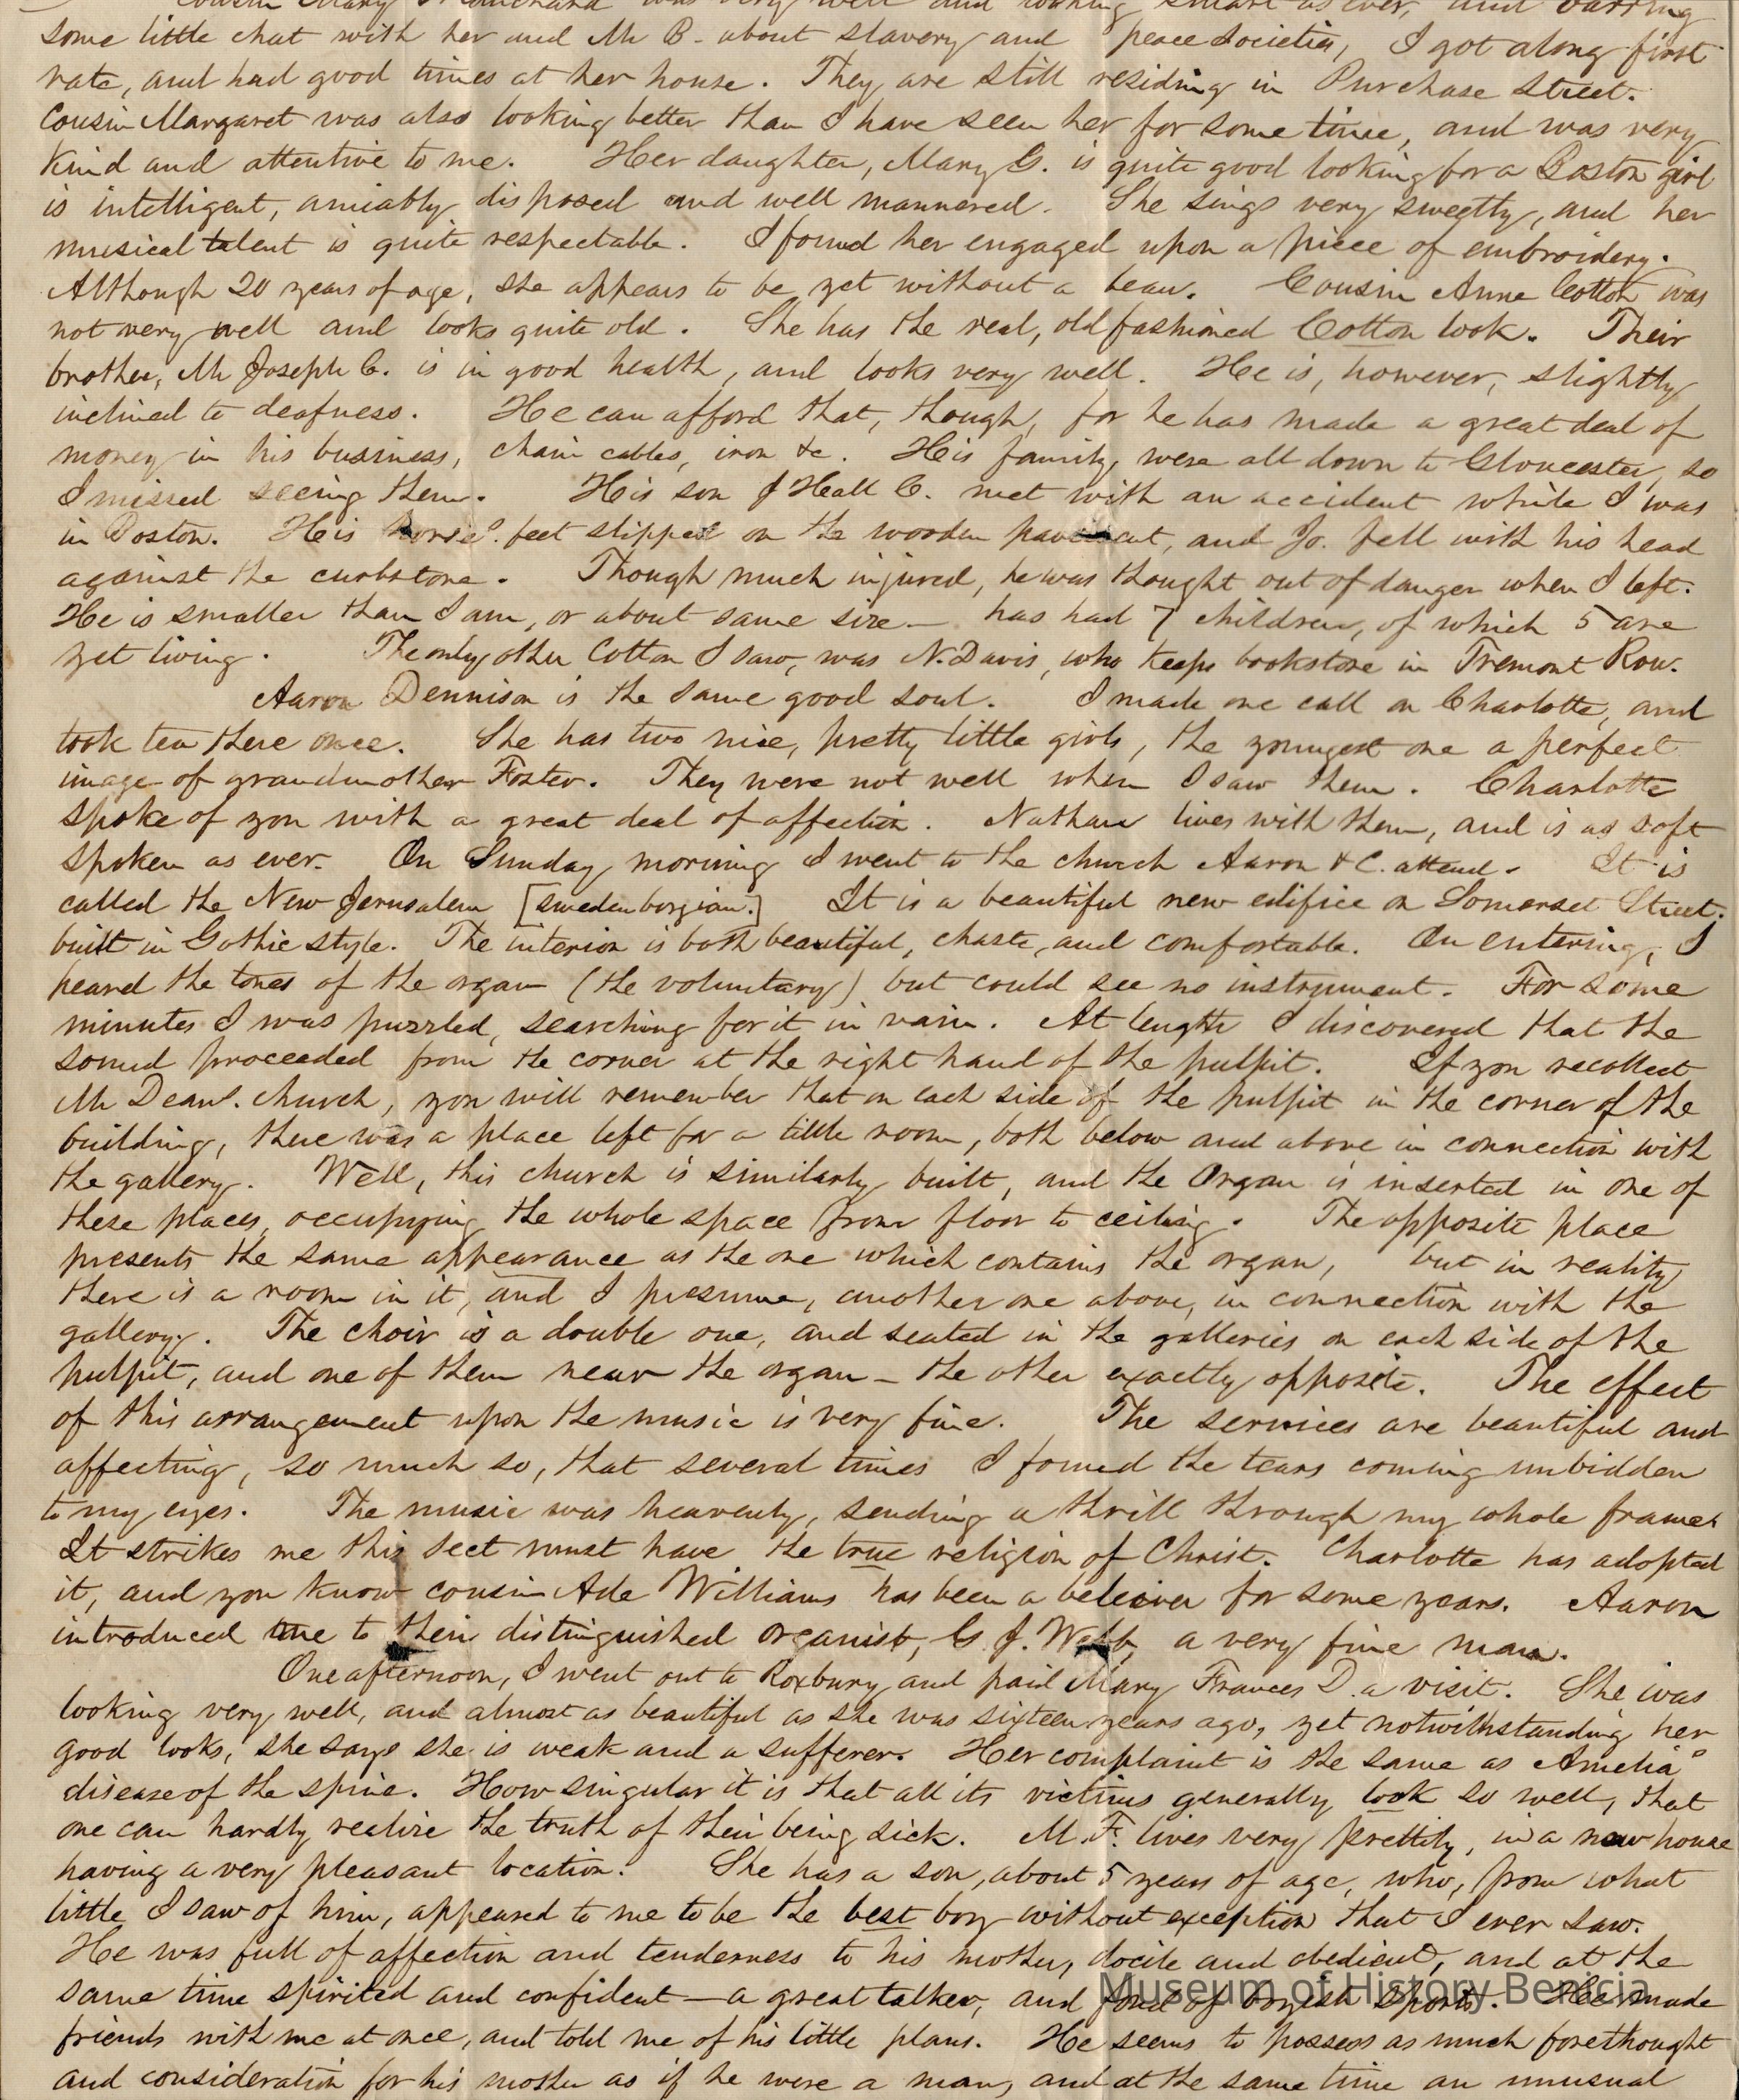 Cousin Mary Blanchard was very well and looking smart as ever, and barring
some little chat with her and Mr B. about slavery and peace societies, I got along first
rate, and had good times at her house. They are still residing in Purchase Street.
Cousin Margaret was also looking better than I have seen her for some time, and was very
kind and attentive to me. Her daughter, Mary G. is quite good looking for a Boston girl
is intelligent, amiably disposed and well mannered. She sings very sweetly, and her
musical talent is quite respectable. I found her engaged upon a piece of embroidery.
Although 20 years of age, she appears to be yet without a beau. Cousin Anne Cotton was
not very well and looks quite old. She has the real, old fashioned Cotton look. Their
brother, Mr Joseph C. is in good health, and looks very well. He is, however, slightly
inclined to deafness. He can afford that, though, for he has made a great deal of
money in his business, chain cables, iron &c. His family were all down to Gloucester, so
I missed seeing them. His son J Heall C. met with an accident while I was
in Boston. His horse's feet slipped on the wooden pavement, and Jo. fell with his head
against the curbstone. Though much injured, he was thought out of danger when I left.
He is smaller than I am, or about same size — has had 7 children, of which 5 are
yet living. The only other Cotton I saw, was N. Davis, who keeps bookstore in Tremont Row.
Aaron Dennison is the same good soul. I made one call on Charlotte, and
took tea there once. She has two nice, pretty little girls, the youngest one a perfect
image of grandmother Foster. They were not well when I saw them. Charlotte
spoke of you with a great deal of affection. Nathan lives with them, and is as soft
spoken as ever. On Sunday morning I went to the church Aaron & C. attend. It is
called the New Jerusalem [Swedenborgian.] It is a beautiful new edifice on Somerset Street.
built in Gothic style. The interior is both beautiful, chaste, and comfortable. On entering, I
heard the tones of the organ (the voluntary) but could see no instrument. For some
minutes I was puzzled, searching for it in vain. At length I discovered that the
sound proceeded from the corner at the right hand of the pulpit. If you recollect
Mr Dean's church, you will remember that on each side of the pulpit in the corner of the
building, there was a place left for a little room, both below and above in connection with
the gallery. Well, this church is similarly built, and the Organ is inserted in one of
these places, occupying the whole space from floor to ceiling. The opposite place
presents the same appearance as the one which contains the organ, but in reality
there is a room in it, and I presume, another one above, in connection with the
gallery. The choir is a double one, and seated in the galleries on each side of the
pulpit, and one of them near the organ — the other exactly opposite. The effect
of this arrangement upon the music is very fine. The services are beautiful and
affecting, so much so, that several times I found the tears coming unbidden
to my eyes. The music was heavenly, sending a thrill through my whole frame.
It strikes me this sect must have the true religion of Christ. Charlotte has adopted
it, and you know cousin Ade Williams has been a believer for some years. Aaron
introduced me to their distinguished organist, G. J. Webb, a very fine man.
One afternoon, I went out to Roxbury and paid Mary Frances D. a visit. She was
looking very well, and almost as beautiful as she was sixteen years ago, yet notwithstanding her
good looks, she says she is weak and a sufferer. Her complaint is the same as Amelia's
disease of the spine. How singular it is that all its victims generally look so well, that
one can hardly realize the truth of their being sick. M. F. lives very prettily, in a new house
having a very pleasant location. She has a son, about 5 years of age, who, from what
little I saw of him, appeared to me to be the best boy without exception that I ever saw.
He was full of affection and tenderness to his mother, docile and obedient, and at the
same time spirited and confident — a great talker, and fond of boyish sports. He made
friends with me at once, and told me of his little plans. He seems to possess as much forethought
and consideration for his mother as if he were a man, and at the same time an unusual
Museum of History Benicia